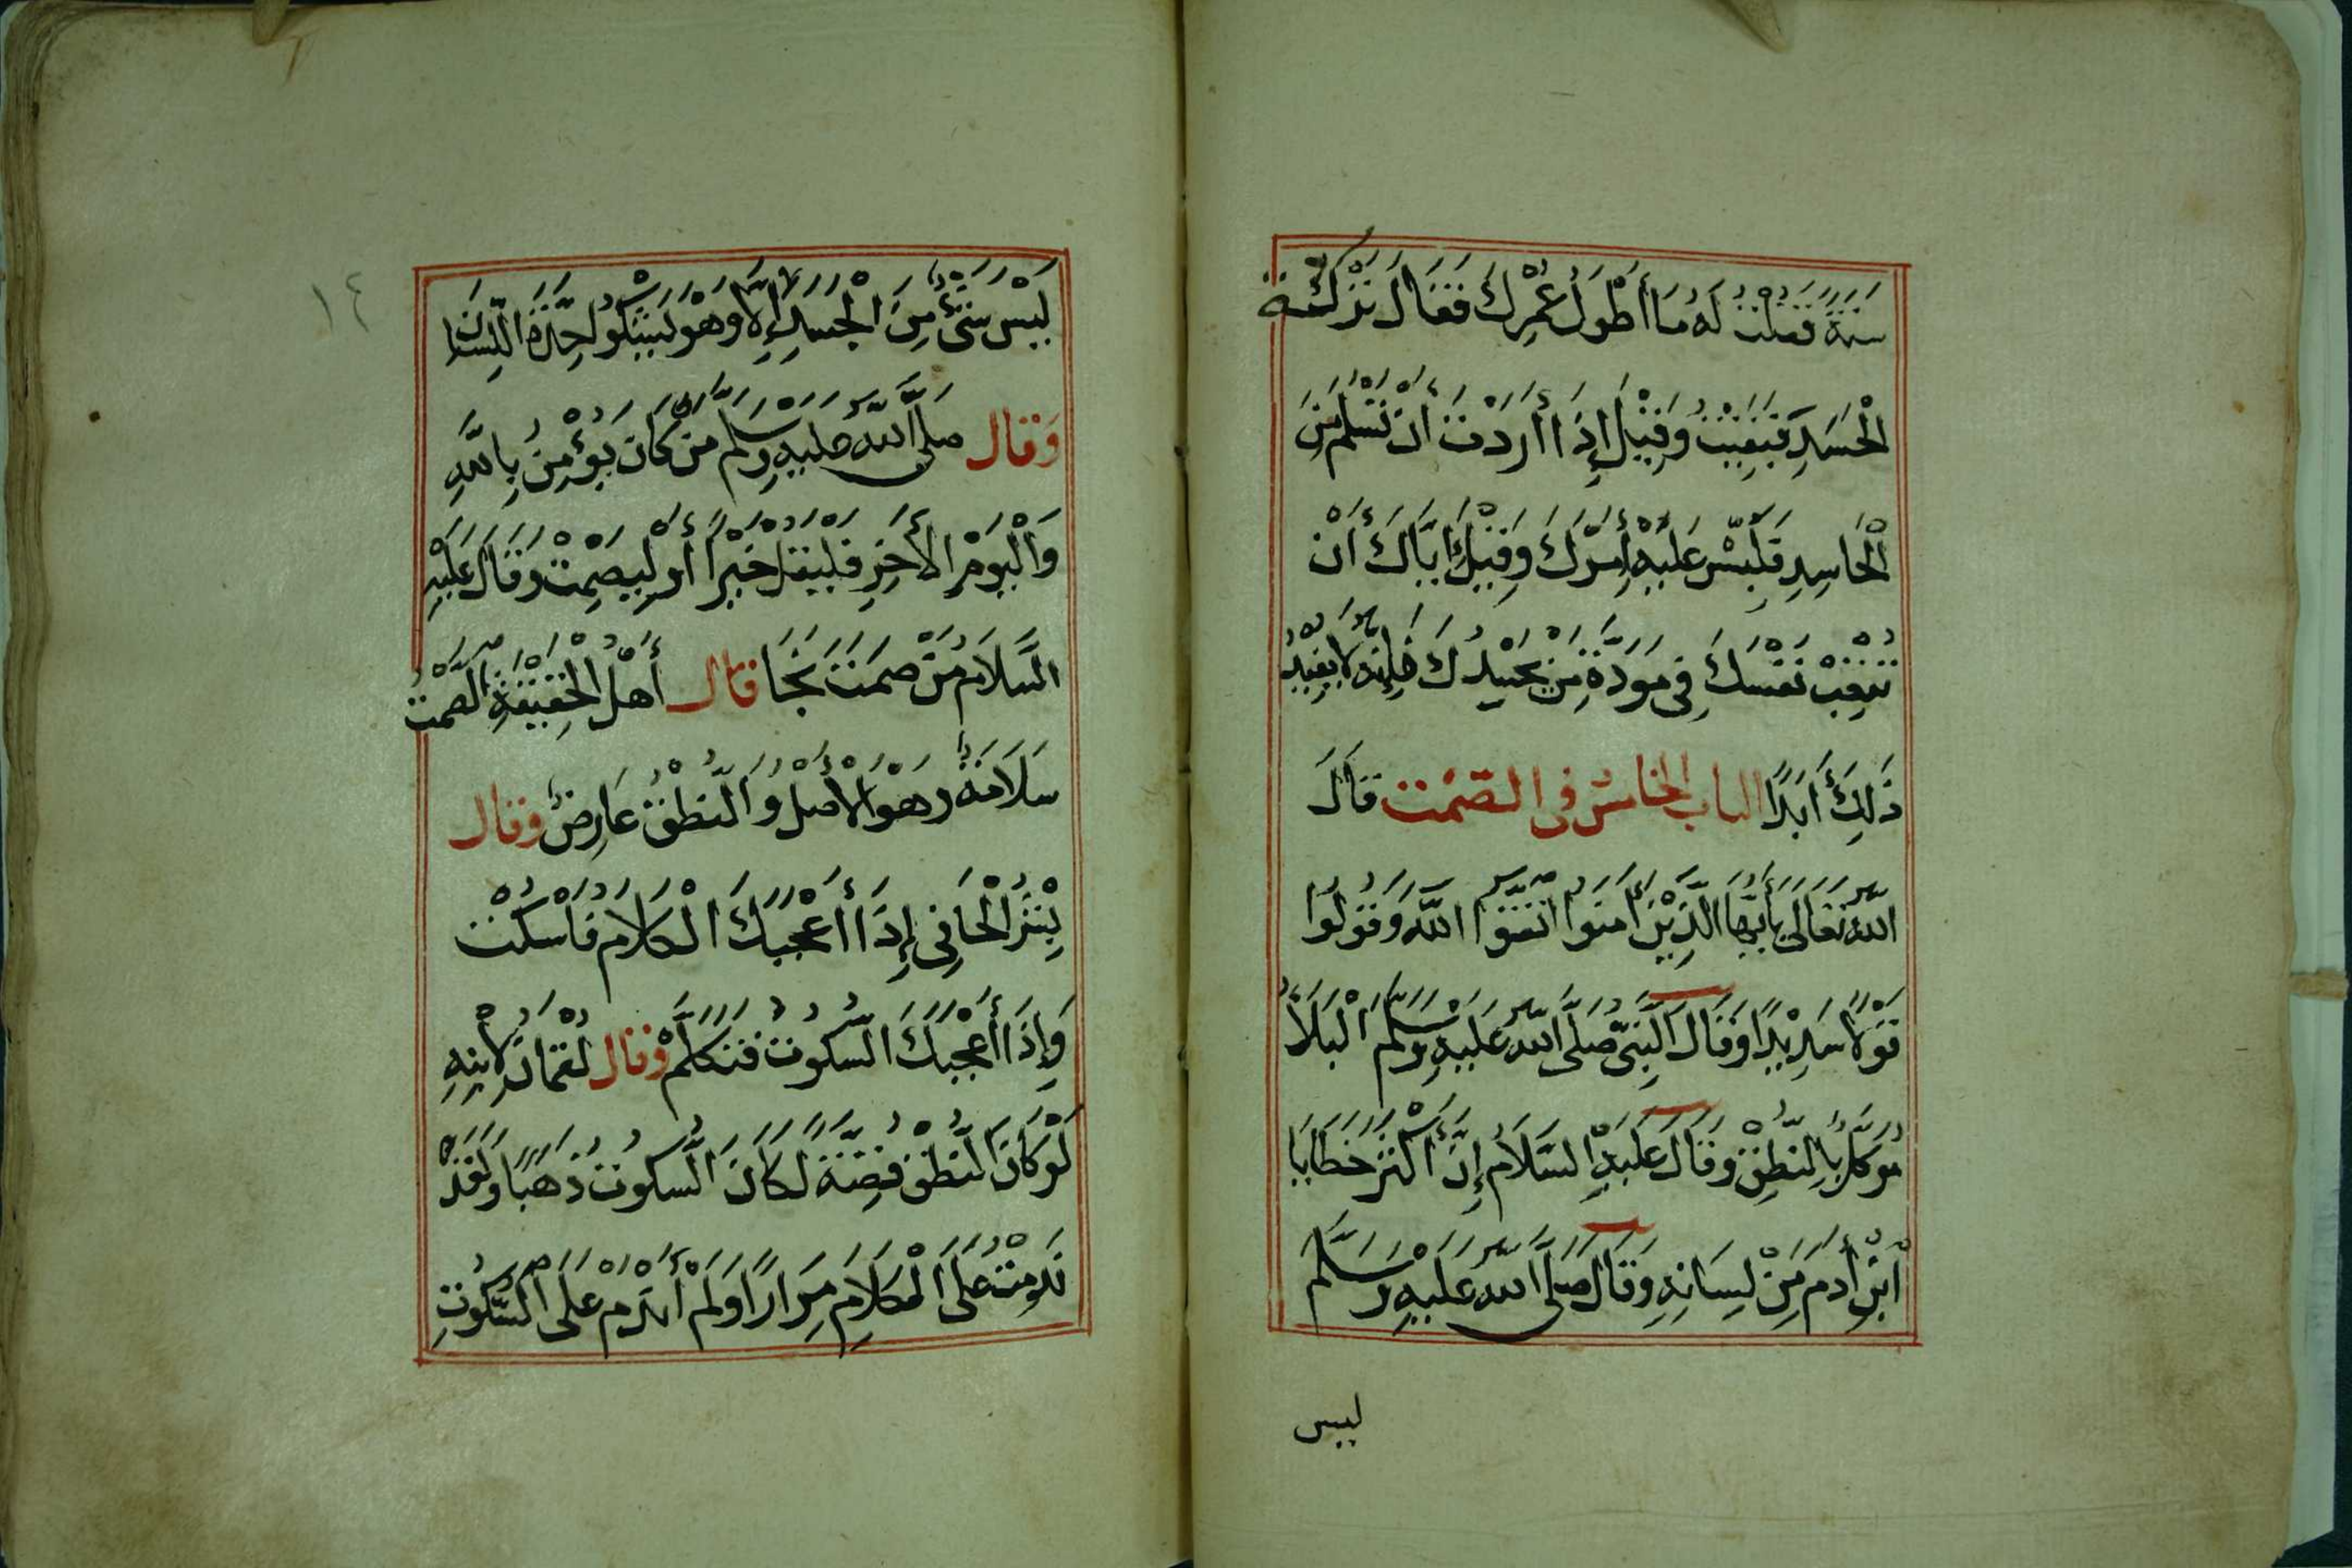 سَنَةً فَقُلْتُ لَهُ مَا أَطْوَلَ عُمْرِكَ فَقَالَ تَرَكْتُ
الْحَسَدِ فَبَقِيتُ وَقِيْلَ إِذَا أَرَدْتَ أَنْ تَسْلَمَ مِنَ
الْحَاسِدِ فَلَبِّسْ عَلَيْهِ أَمْرَكَ وَقِيْلَ إِيَّاكَ أَنْ
تُتْعِبْ نَفْسَكَ فِى مَوَدَّةِ مَنْ يَحْسِدُكَ فَإِنَّهُ لَا يُفِيْدُ
ذَلِكَ أَبَدًا الباب الخامس فى الصَّمْت قَالَ
اللهُ تَعَالَى يَا أَيُّهَا الَّذِيْنَ أَمَنُوا اتَّقُوا اللَّهَ وَقُولُوا
قَوْلًا سَدِيْدًا وَقَالَ النَّبِىُّ صَلَّى اللهُ عَلَيْهِ وَسَلَّمَ الْبَلَاءُ
مُوَكَّلٌ بِالنُّطْقِ وَقَالَ عَلَيْهِ السَّلَامُ إِنَّ أَكْثَرَ خَطَايَا
ابْنِ أَدَمَ مِنْ لِسَانِهِ وَقَالَ صَلَّى اللهُ عَلَيْهِ وَسَلَّمَ
ليس
١٤
لَيْسَ شَىْءٌ مِنَ الْجَسَدِ إِلَّا وَهُوَ يَشْكُو حِدَّةَ اللِّسَانِ
وَقَالَ صَلَّى اللهُ عَلَيْهِ وَسَلَّمَ مَنْ كَانَ يُؤْمِنُ بِاللَّهِ
وَالْيَوْمِ الْأَخِرِ فَلْيَقُلْ خَيْرًا أَوْ لِيَصْمِتْ وَقَالَ عَلَيْهِ
السَّلَامُ مَنْ صَمَتَ نَجَا قَالَ أَهْلُ الْحَقِيْقَةِ الصَّمْتُ
سَلَامَةٌ وَهُوَ الْأَصْلُ وَالنُّطْقُ عَارِضٌ وَقَالَ
بِشْرُ الْحَافِى إِذَا أَعْجَبَكَ الْكَلَامُ فَاسْكُتْ
وَإِذَا أَعْجَبَكَ السُّكُوتُ فَتَكَلَّمْ وَقَالَ لُقْمَانُ لِابْنِهِ
لَوْ كَانَ النُّطْقُ فِضَّةً لَكَانَ السُّكُوتُ ذَهَبًا وَلَقَدْ
نَدِمْتُ عَلَى الْكَلَامِ مِرَارًا وَلَمْ أَنْدَمْ عَلَى السُّكُوتِ